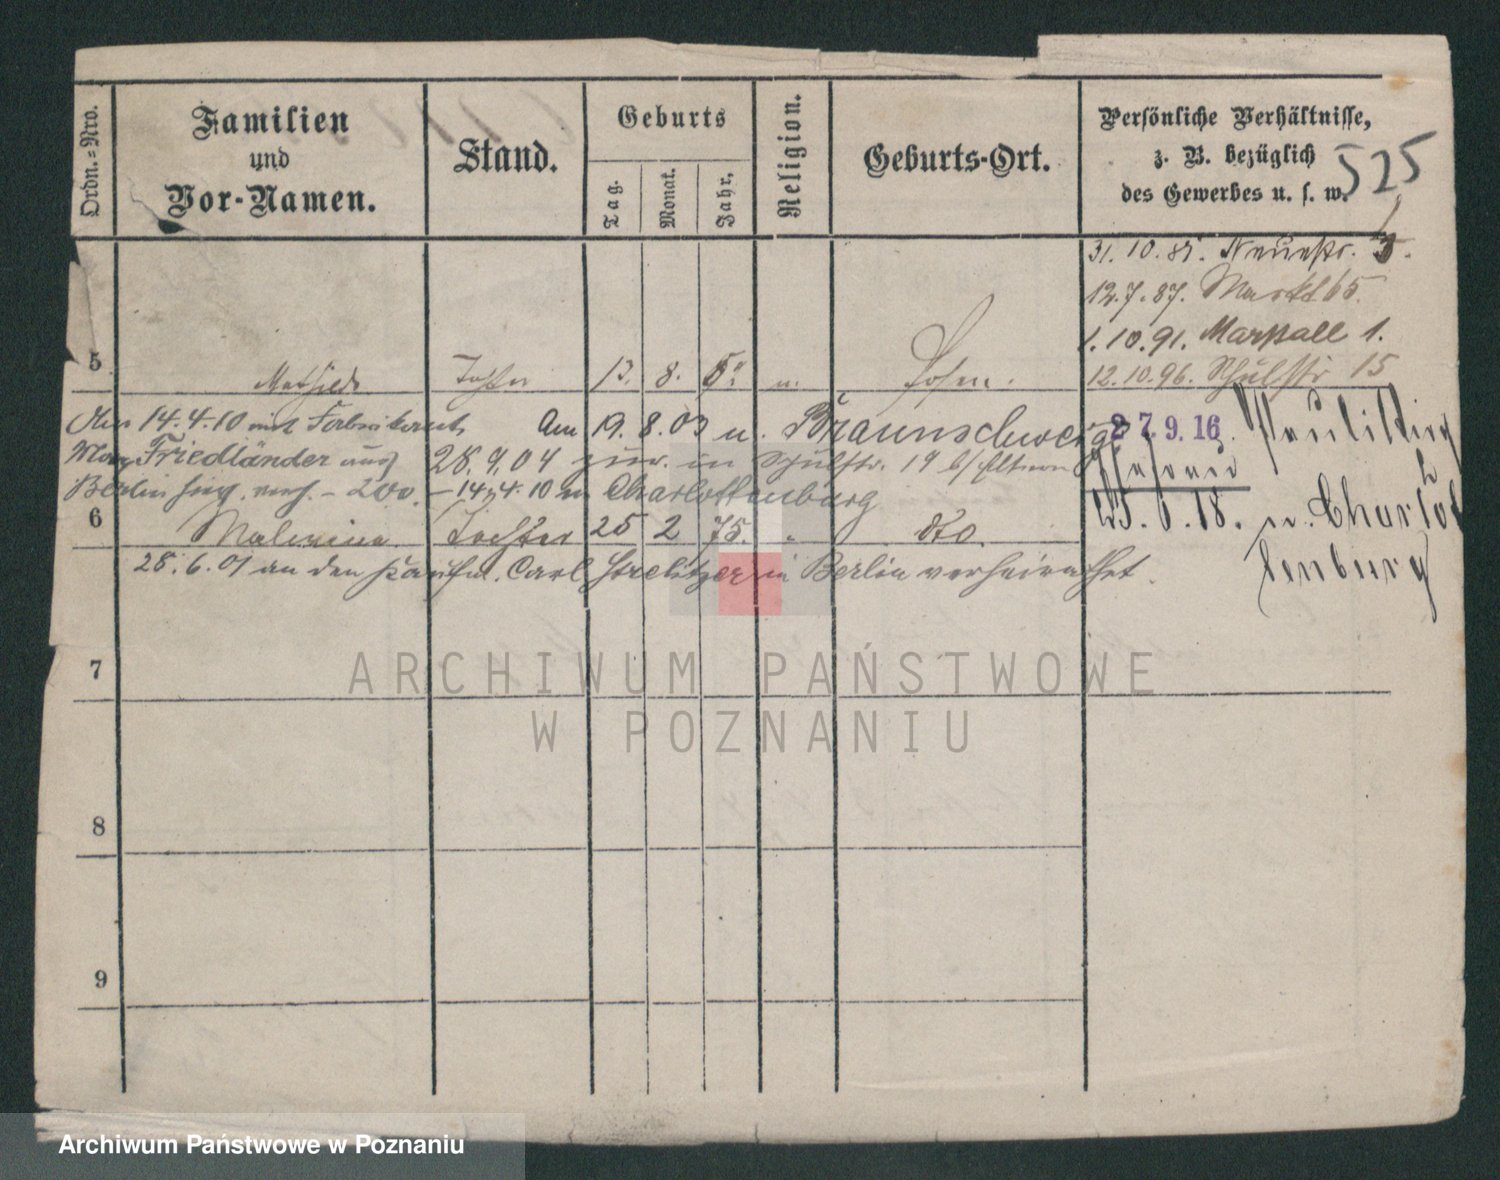 Ordn.=Nro.
Familien
und
Vor-Namen.
Stand.
Geburts
Tag.
Monat.
Jahr.
Religion.
Geburts-Ort.
Persönliche Verhältnisse,
z. B. bezüglich
des Gewerbes u. s. w.
525
31. 10. 85. Neuestr. 3.
12. 7. 87. Markt 65.
1. 10. 91. Marstall 1.
12. 10. 96. Schulstr 15
5
Mathilde Tochter 13. 8. Posen.
14.4.10 mit Fabrikant
Max Friedländer aus
Berlin 200.
Am 19. 8. 03 n. Braunschweig
28. 9. 04 zur. in Schulstr. 19 b/ Eltern
14.4.10 n Charlottenburg
27.9.16. Paulistr
25. 6. 18. n. Charlot
tenburg
6
Malwina Tochter 25 2 75. " dto
28. 6. 01 an den Kaufm. Carl Strelitzer in Berlin verheirathet.
7
8
9
ARCHIWUM PAŃSTWOWE
W POZNANIU
Archiwum Państwowe w Poznaniu